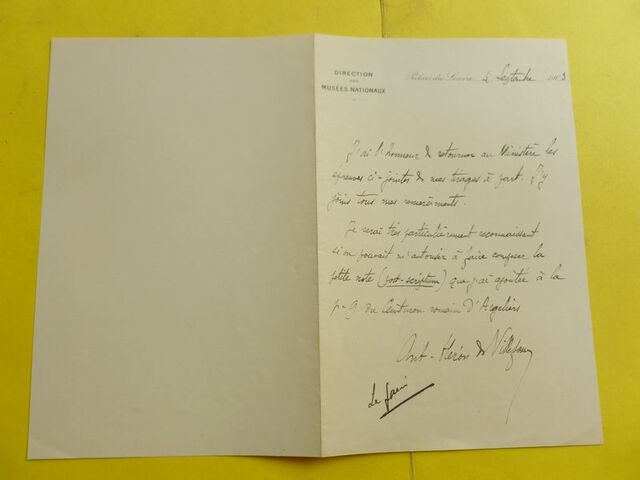 DIRECTION
DES
MUSÉES NATIONAUX
Palais du Louvre, 4 Septembre
J'ai l'honneur de retourner au Ministère les
épreuves ci-jointes de mes tirages à part. J'y
joins tous mes remerciements.
Je serai très particulièrement reconnaissant
si on pouvait m'autoriser à faire composer la
petite note (post-scriptum) que j'ai ajoutée à la
p. 9 du Ceinturon romain d'Argeliers
Ant. Héron de Villefosse
Le faire